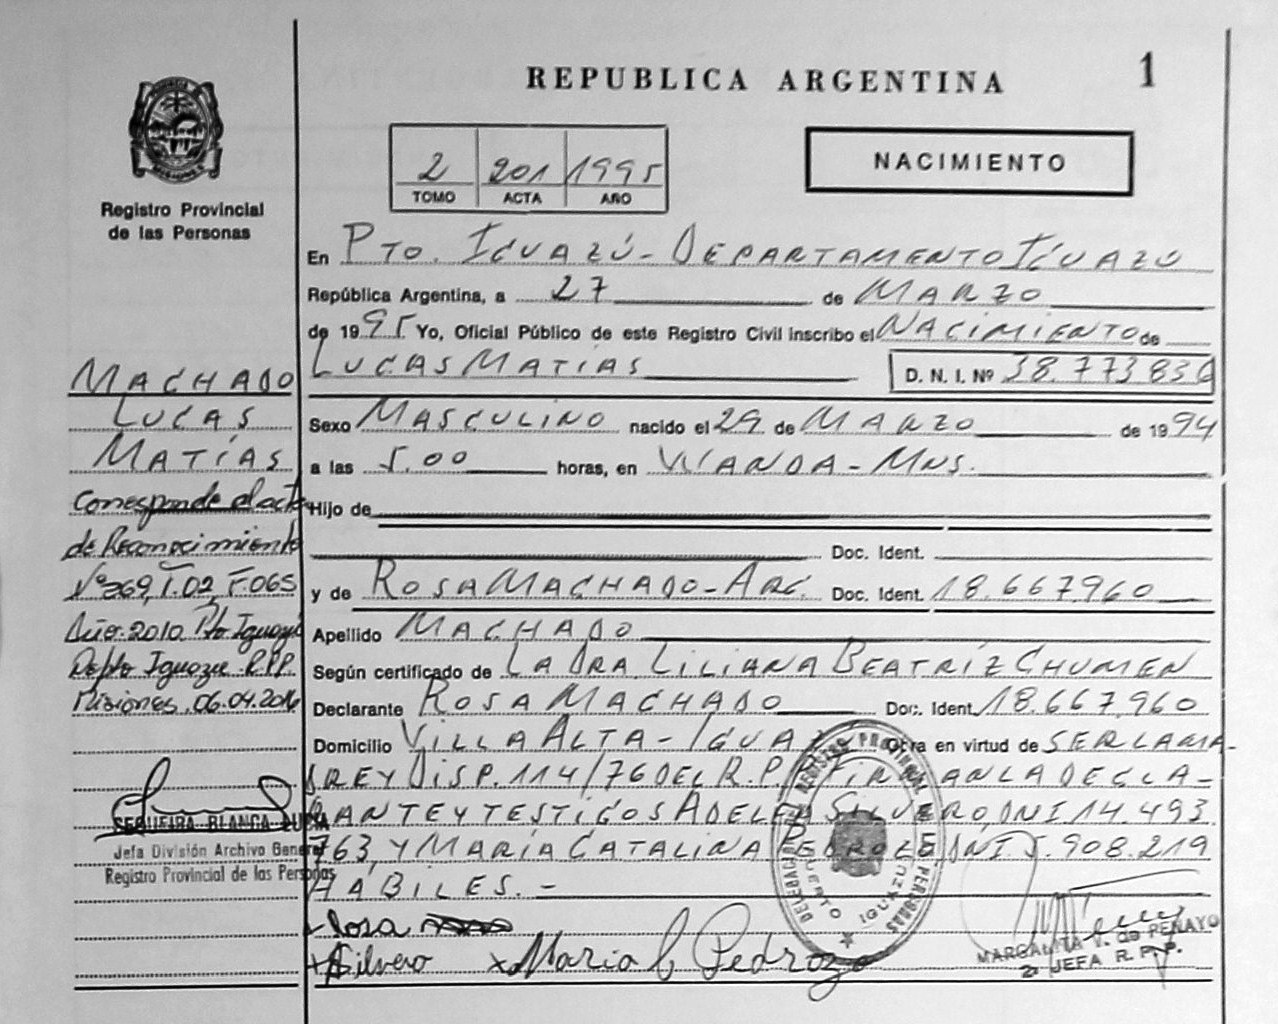 REPUBLICA ARGENTINA
1
NACIMIENTO
2 201 1995
TOMO ACTA AÑO
Registro Provincial
de las Personas
En PTO. IGUAZÚ - DEPARTAMENTO IGUAZÚ
República Argentina, a 27 de MARZO
de 1995 Yo, Oficial Público de este Registro Civil inscribo el NACIMIENTO de
LUCAS MATIAS D. N. I. Nº 38.773836
Sexo MASCULINO nacido el 29 de MARZO de 1994
a las 5.00 horas, en WANDA - MNS.
Hijo de
Doc. Ident.
y de ROSA MACHADO - ARG. Doc. Ident. 18.667.960
Apellido MACHADO
Según certificado de LA DRA. LILIANA BEATRÍZ CHUMEN
Declarante ROSA MACHADO Doc. Ident. 18.667.960
Domicilio VILLA ALTA - Otra en virtud de SER LA MA-
DRE Y DISP. 114/76 DEL R.P.P. FIRMAN LA DECLA-
RANTE Y TESTIGOS SILVERO, DNI 14.493.
763, Y MARÍA CATALINA DNI. 5.908.219
HÁBILES. -
Rosa
Silvero x Maria C Pedrozo
MACHADO
LUCAS
MATÍAS
Corresponde al acta
de Reconocimiento
Nº 269, T. 02, F. 065
Año. 2010 Pto Iguazú
Dpto Iguazu. R.P.P.
Misiones, 06.04.2016
SEQUEIRA BLANCA LUCIA
Jefa División Archivo General
Registro Provincial de las Personas
DELEGACION REGISTRO PROVINCIAL DE LAS PERSONAS
PUERTO IGUAZU
MARGARITA V. de PENAYO
2ª JEFA R. P. P.